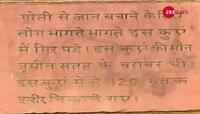 ZEE NEWS
गोली से जान बचाने के
लोग भागते भागते इस कुएं
में गिर पड़े। इस कुएं की मौन
ज़मीन सतह के बराबर थी।
इस कुएं में से 120 मृतक
शरीर निकाले गए।